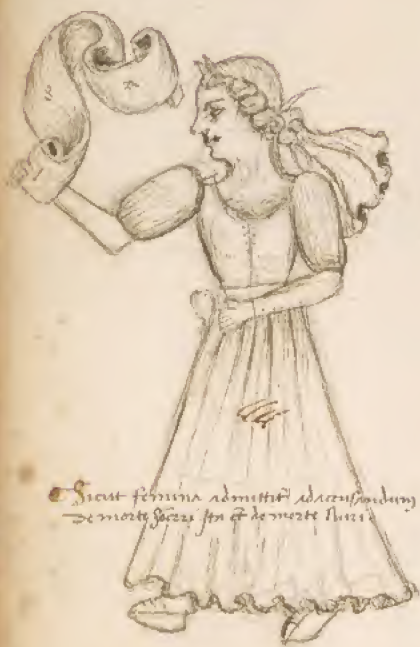 Sicut femina admittit ad accusandum
de morte soceri ita et de morte nuri